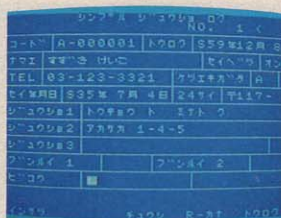 シンプル ジュウショ ロク
NO. 1 <
コード A-000001 トウロク S59年12月 8
ナマエ すずき けいこ セイベツ オン
TEL 03-123-3321 ケツエキガタ A
セイ年月日 S35年 7月 4日 24サイ 〒117-
ジュウショ1 トウキョウ ト ミナト ク
ジュウショ2 アカサカ 1-4-5
ジュウショ3
ブンルイ 1 ブンルイ 2
ビコウ
R-カナ トウロク